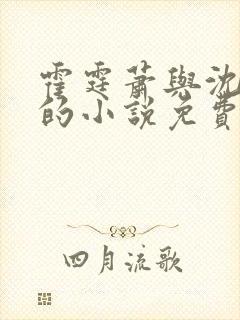 霍霆蕭與沈
的小說免費
四月流歌